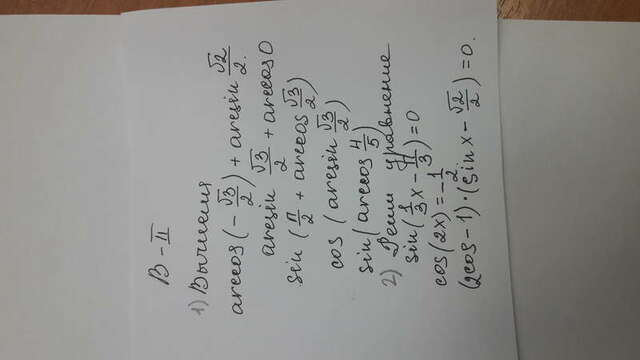 В-II
1) Вычисли
arccos(-√3/2) + arcsin √2/2.
arcsin √3/2 + arccos 0
sin(π/2 + arccos √3/2)
cos(arcsin √3/2)
sin(arccos 4/5)
2) Реши уравнение
sin(1/3 x - π/3) = 0
cos(2x) = -1/2
(2cos - 1)·(sin x - √2/2) = 0.